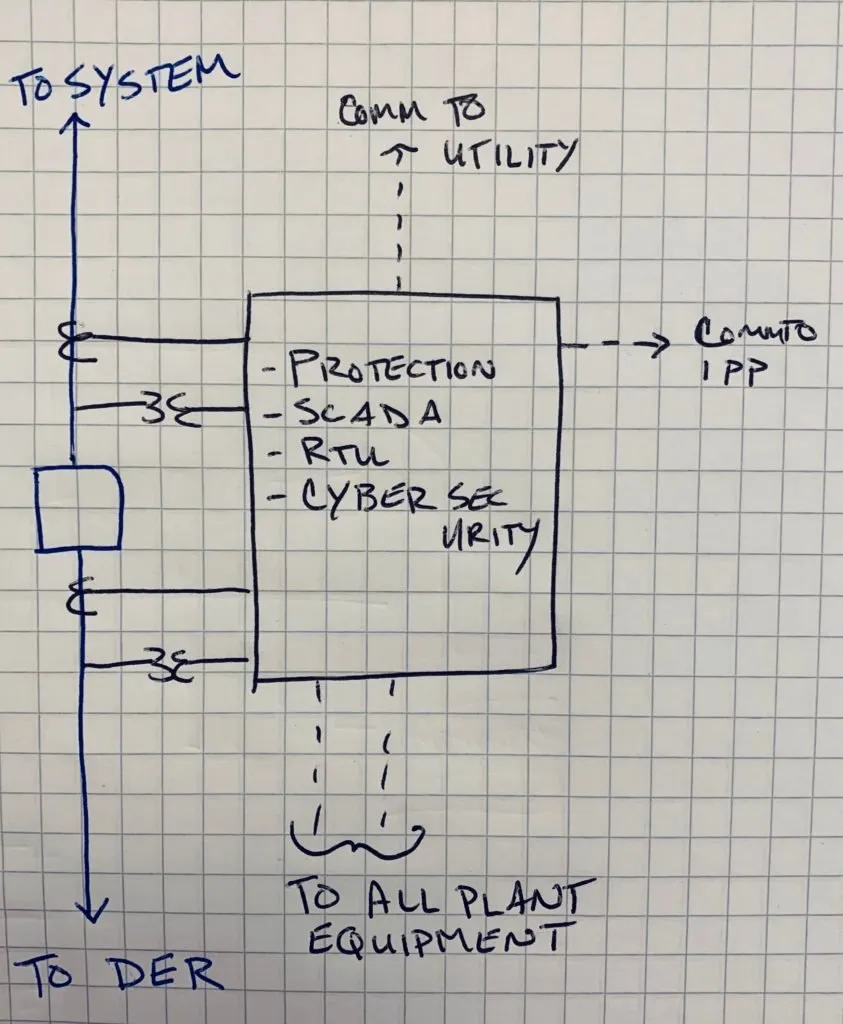 TO SYSTEM
COMM TO
UTILITY
COMM TO
IPP
- PROTECTION
- SCADA
- RTU
- CYBER SEC
URITY
TO ALL PLANT
EQUIPMENT
TO DER